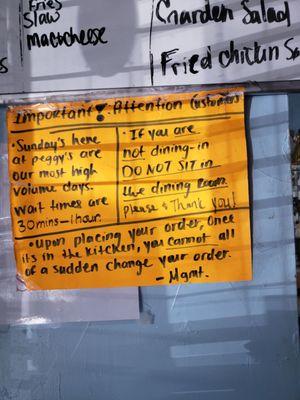 Fries
Slaw
mac&cheese
Garden Salad
Fried chicken Sa
Important! Attention Customers
• Sunday's here
at peggy's are
our most high
volume days.
wait times are
30mins-1hour.
• If you are
not dining-in
DO NOT SIT in
the dining room
please & Thank you!
• upon placing your order, once
it's in the kitchen, you cannot all
of a sudden change your order.
- Mgmt.